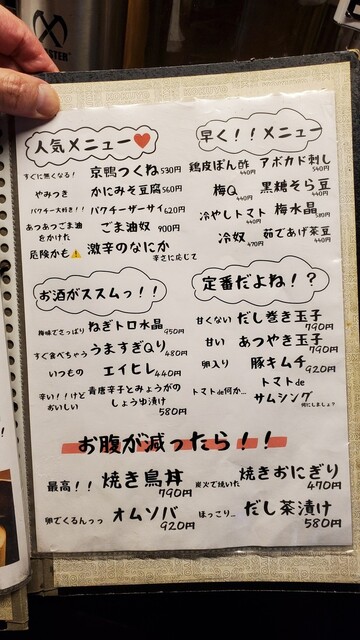 人気メニュー
すぐに無くなる！ 京鴨つくね 530円
やみつき かにみそ豆腐 560円
パクチー大好き！！ パクチーザーサイ 620円
あつあつごま油をかけた ごま油奴 900円
危険かも 激辛のなにか
辛さに応じて
早く！！メニュー
鶏皮ぽん酢 440円 アボカド刺し 540円
梅Q 440円 黒糖そら豆 440円
冷やしトマト 440円 梅水晶
冷奴 470円 茹であげ茶豆 440円
お酒がススムっ！！
梅味でさっぱり ねぎトロ水晶 950円
すぐ食べちゃう うますぎQり 480円
いつもの エイヒレ 440円
辛い！！けどおいしい 青唐辛子とみょうがの
しょうゆ漬け 580円
定番だよね！？
甘くない だし巻き玉子 790円
甘い あつやき玉子 790円
卵入り 豚キムチ 920円
トマトde何か… トマトde
サムシング 何にしましょ？
お腹が減ったら！！
最高！！ 焼き鳥丼 790円
炭火で焼いた 焼きおにぎり 470円
卵でくるんっっ オムソバ 920円
ほっこり… だし茶漬け 580円